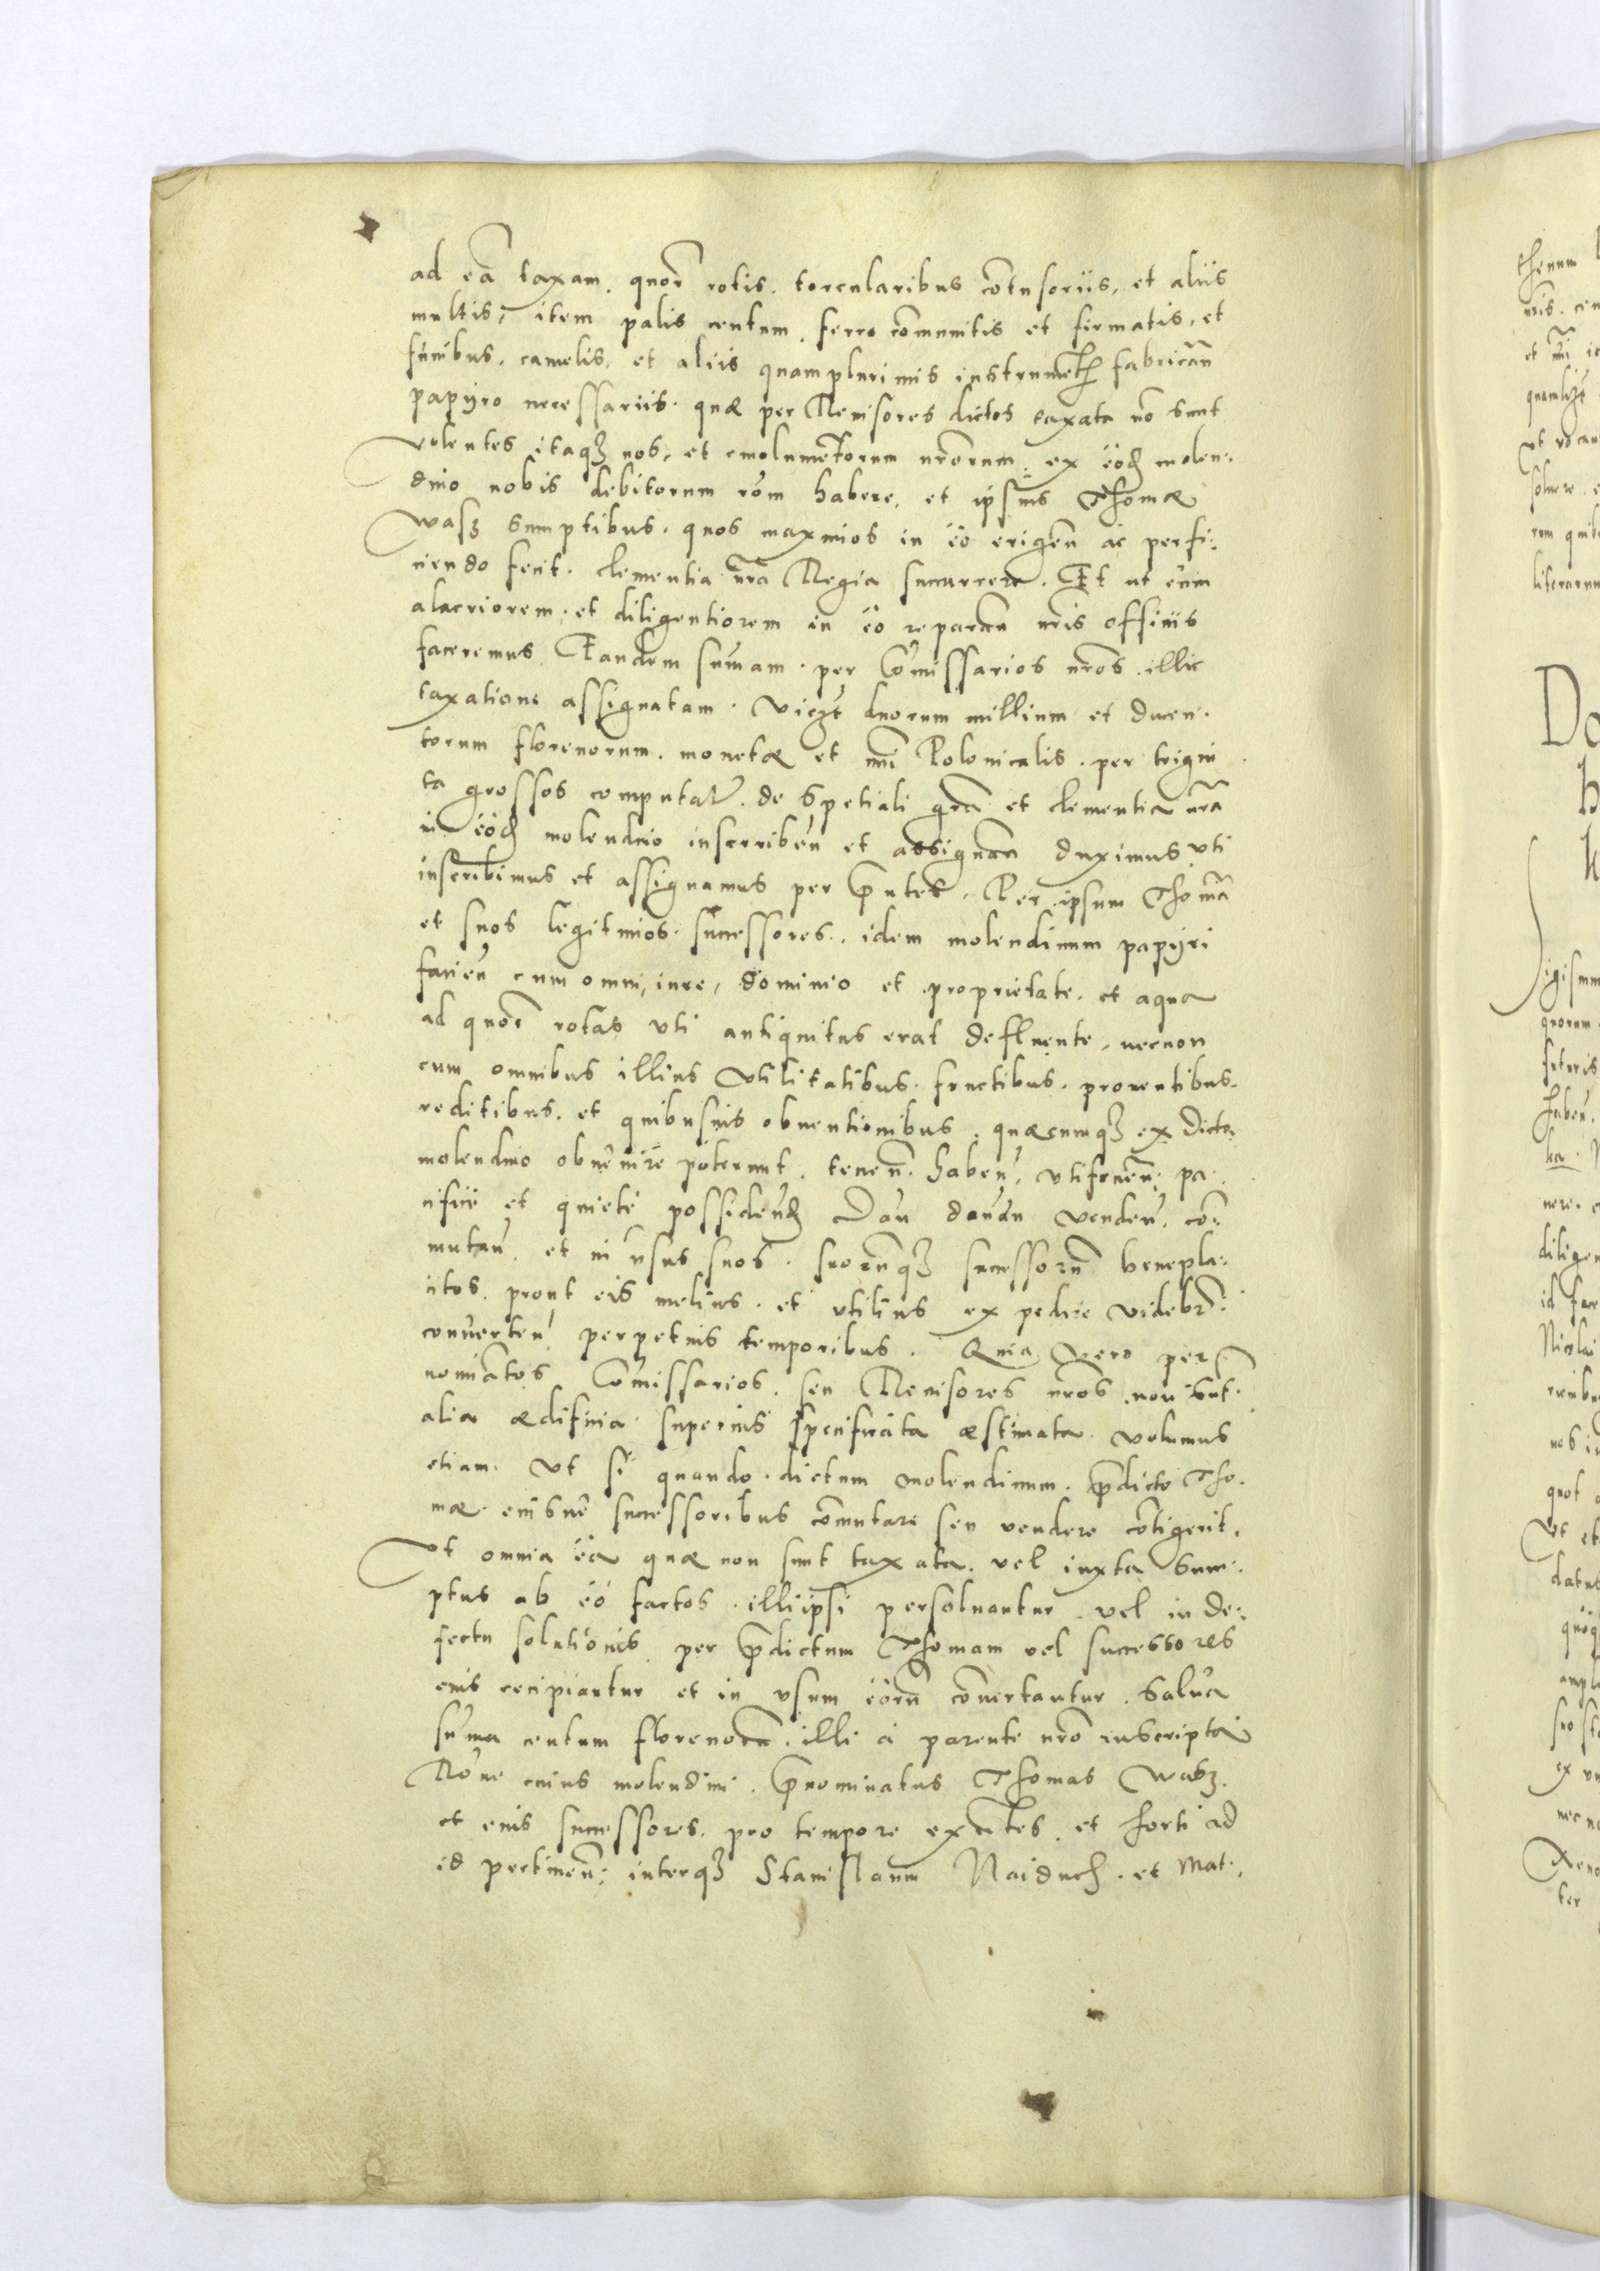 ad eã taxam. quoꝝ rotis. torcularibus cõtusoriis, et aliis
multis, item palis centum. ferro cõmunitis et firmatis, et
funibus. camelis. et aliis quamplurimis instrumẽt fabricañ
papyro necessariis. quæ per Revisores dictos taxata nõ sunt
volentes itaqȝ nos, et emolumẽtorum nr̃orum. ex eod molen:
dino nobis debitorum rõm habere, et ipsius Thomæ
Wasȝ sumptibus. quos maximos in eo erigeñ ac perfi:
ciendo fecit. clementia nr̃a Regia succurrere. Et ut eum
alacriorem. et diligentiorem in eo reparañ nr̃is officiis
faceremus Eandem sum̃am. per Com̃issarios nr̃os. illic
taxatione assignatam. vicȝt duorum millium et ducen.
torum florenorum. monetæ et nũi Polonicalis. per trigin
ta grossos computař. de spetiali gr̃a et clementia nr̃a
in eod molendino inscribeñ et assignañ duximus uti
inscribimus et assignamus per p̃ntes. Per ipsum Thomã
et suos legitimos successores. idem molendinum papyri
facieñ cum omni iure, dominio et proprietate. et aqua
ad quoꝝ rotas uti antiquitus erat defluente, necnon
cum omnibus illius utilitatibus. fructibus. proventibus.
reditibus. et quibusuis obventionibus. quæcumqȝ ex dicto
molendino obvenire poterunt. teneñ. habeñ, utifrueñ. pa.
cificè et quietè possideñd Dañ donañ vendeñ. cõ:
mutañ. et in usus suos. suorumqȝ successorũ benepla:
citos. prout eis melius. et utilius expedire videbr̃.
converteñ perpetuis temporibus. Quia vero per
nomiatos Com̃issarios. seu Revisores nr̃os. non sunt
alia ædificia superius specificata æstimata. volumus
etiam. Ut si quando. dictum molendinum. p̃dicto Tho.
mæ. eiusve successoribus cõmutare seu vendere cõtigerit.
Ut omnia ea quæ non sunt taxata. vel iuxta sum:
ptus ab eo factos. illi ipsi persolvantur. vel in de:
fectu solutionis per p̃dictum Thomam vel successores
eius recipiantur et in usum eorũ cõvertantur. Salva
sum̃a centum florenorũ. illi à parente nr̃o inscripta
Rõne cuius molendini. p̃nominatus Thomas Wasȝ.
et eius successores. pro tempore exñtes. et horti ad
id pertineñ. interqȝ Stanislaum Naiduch. et Mat: